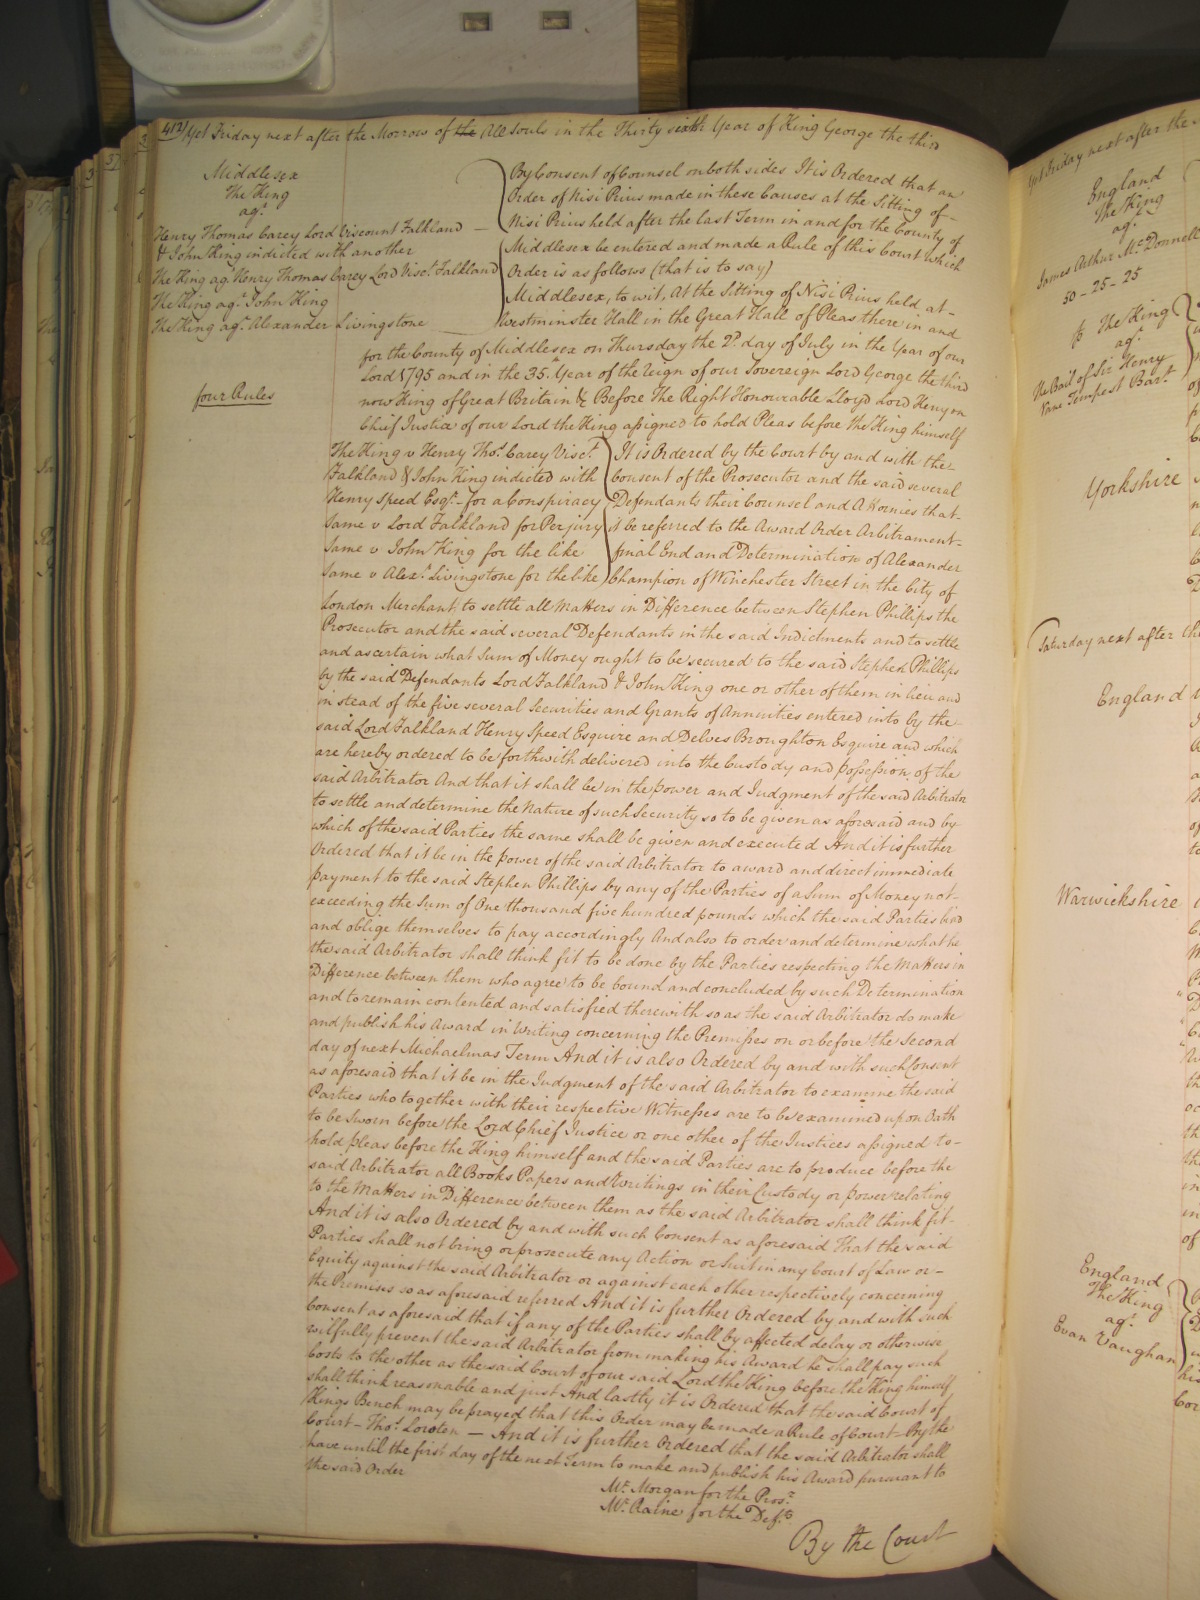 412) Yet Friday next after the Morrow of the All Souls in the Thirty sixth Year of King George the third
Middlesex
The King
agt.
Henry Thomas Carey Lord Viscount Falkland
& John King indicted with another
The King agt. Henry Thomas Carey Lord Visct. Falkland
The King agt. John King
The King agt. Alexander Livingstone
four Rules
By Consent of Counsel on both sides It is Ordered that an
Order of Nisi Prius made in these Causes at the Sitting of
Nisi Prius held after the last Term in and for the County of
Middlesex be entered and made a Rule of this Court which
Order is as follows (that is to say)
Middlesex, to wit, At the Sitting of Nisi Prius held at
Westminster Hall in the Great Hall of Pleas there in and
for the County of Middlesex on Thursday the 2d. day of July in the Year of our
Lord 1795 and in the 35. Year of the Reign of our Sovereign Lord George the third
now King of Great Britain &c Before The Right Honourable Lloyd Lord Kenyon
Chief Justice of our Lord the King assigned to hold Pleas before the King himself
The King v Henry Thos. Carey Visct.
Falkland & John King indicted with
Henry Speed Esqr. for a Conspiracy
Same v Lord Falkland for Perjury
Same v John King for the like
Same v Alexr. Livingstone for the like
It is Ordered by the Court by and with the
Consent of the Prosecutor and the said several
Defendants their Counsel and Attornies that
it be referred to the Award Order Arbitrament
final End and Determination of Alexander
Champion of Winchester Street in the City of
London Merchant to settle all Matters in Difference between Stephen Phillips the
Prosecutor and the said several Defendants in the said Indictments and to settle
and ascertain what Sum of Money ought to be secured to the said Stephen Phillips
by the said Defendants Lord Falkland & John King one or other of them in lieu and
in stead of the five several Securities and Grants of Annuities entered into by the
said Lord Falkland Henry Speed Esquire and Delves Broughton Esquire and which
are hereby ordered to be forthwith delivered into the Custody and possession of the
said Arbitrator And that it shall be in the power and Judgment of the said Arbitrator
to settle and determine the Nature of such Security so to be given as aforesaid and by
which of the said Parties the same shall be given and executed And it is further
Ordered that it be in the power of the said Arbitrator to award and direct immediate
payment to the said Stephen Phillips by any of the Parties of a Sum of Money not
exceeding the Sum of One thousand five hundred pounds which the said Parties bind
and oblige themselves to pay accordingly And also to order and determine what he
the said Arbitrator shall think fit to be done by the Parties respecting the Matters in
Difference between them who agree to be bound and concluded by such Determination
and to remain contented and satisfied therewith so as the said Arbitrator do make
and publish his Award in Writing concerning the Premisses on or before the Second
day of next Michaelmas Term And it is also Ordered by and with such Consent
as aforesaid that it be in the Judgment of the said Arbitrator to examine the said
Parties who together with their respective Witnesses are to be examined upon Oath
to be Sworn before the Lord Chief Justice or one other of the Justices assigned to
hold pleas before the King himself and the said Parties are to produce before the
said Arbitrator all Books Papers and Writings in their Custody or power relating
to the Matters in Difference between them as the said Arbitrator shall think fit
And it is also Ordered by and with such Consent as aforesaid That the said
Parties shall not bring or prosecute any Action or Suit in any Court of Law or
Equity against the said Arbitrator or against each other respectively concerning
the Premises so as aforesaid referred And it is further Ordered by and with such
Consent as aforesaid that if any of the Parties shall by affected delay or otherwise
wilfully prevent the said Arbitrator from making his Award he shall pay such
Costs to the other as the said Court of our said Lord the King before the King himself
shall think reasonable and just And lastly it is Ordered that the said Court of
Kings Bench may be prayed that this Order may be made a Rule of Court By the
Court Thos. Lowten And it is further Ordered that the said Arbitrator shall
have until the first day of the next Term to make and publish his Award pursuant to
the said Order
Mr. Morgan for the Prosr.
Mr. Raine for the Defts.
By the Court
Yet Friday next after the
England
The King
agt.
James Arthur McDonnell
50-25-25
The King
agt.
The Bail of Sir Henry
Vane Tempest Bart.
Yorkshire
Saturday next after the
England
Warwickshire
England
The King
agt.
Evan Vaughan